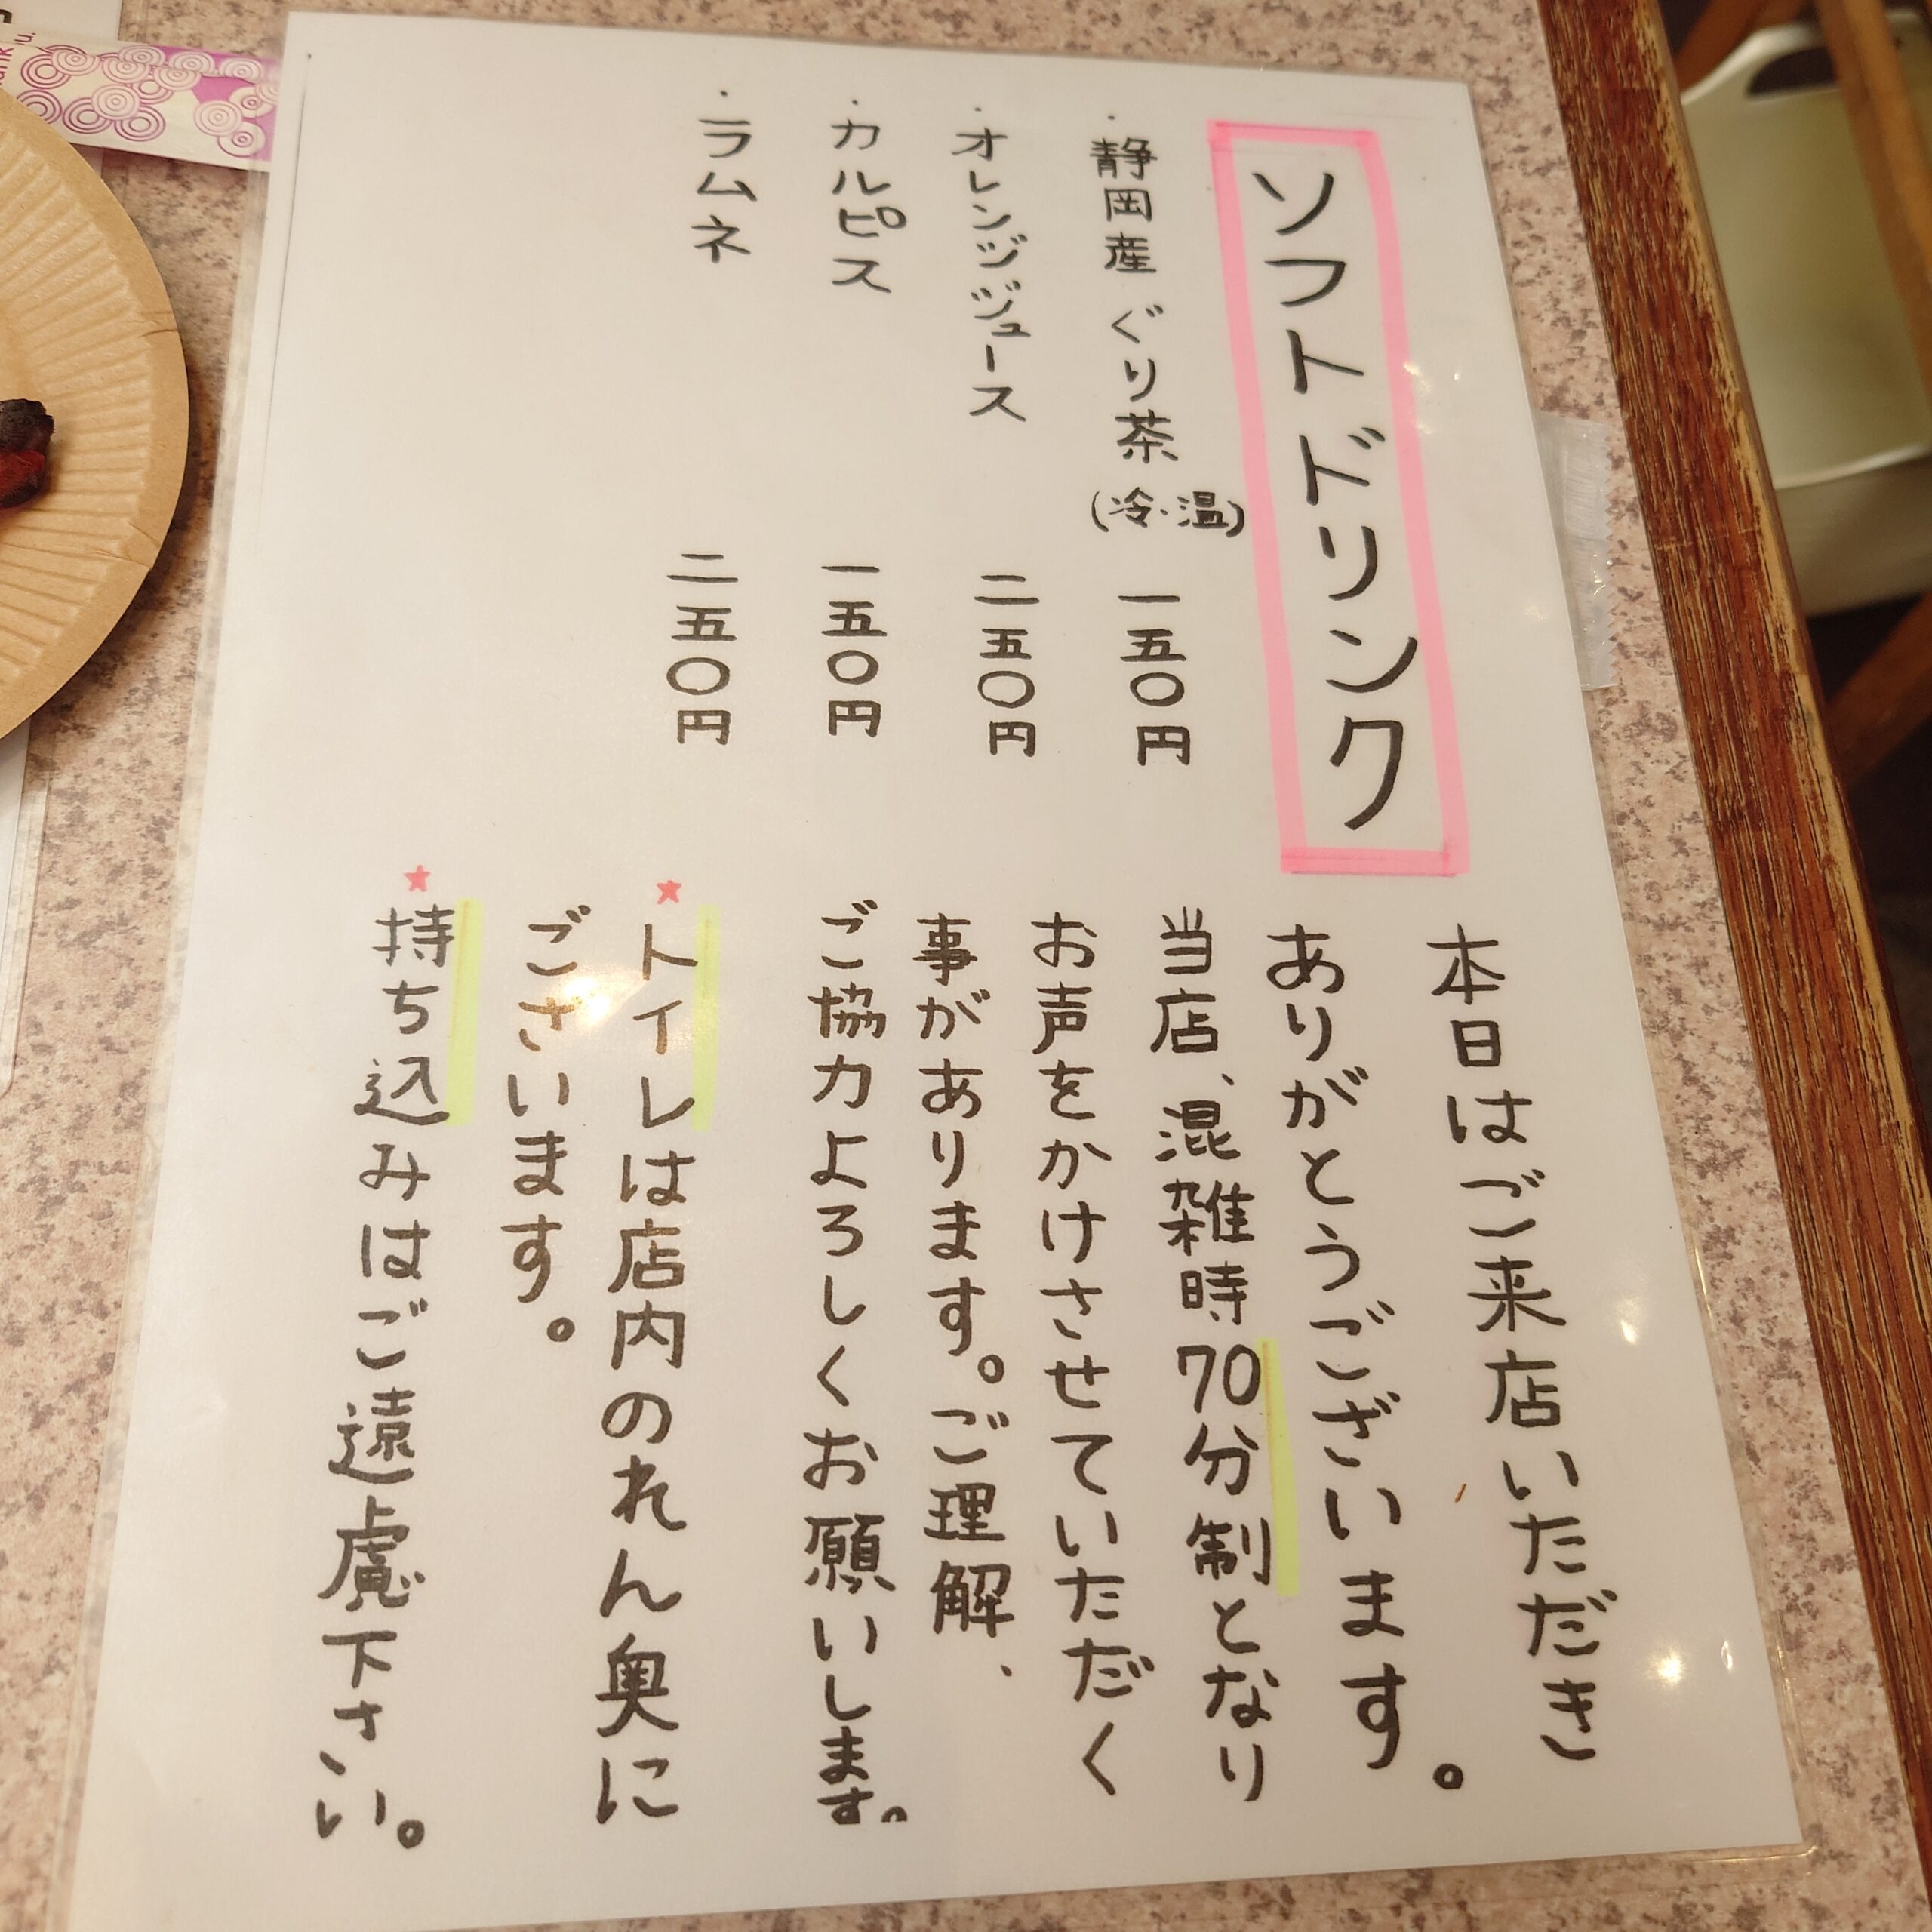 ソフトドリンク
・静岡産 ぐり茶 (冷・温) 一五〇円
・オレンジジュース 二五〇円
・カルピス 一五〇円
・ラムネ 二五〇円
本日はご来店いただき
ありがとうございます。
当店、混雑時70分制となり
お声をかけさせていただく
事があります。ご理解、
ご協力よろしくお願いします。
★トイレは店内のれん奥に
ございます。
★持ち込みはご遠慮下さい。